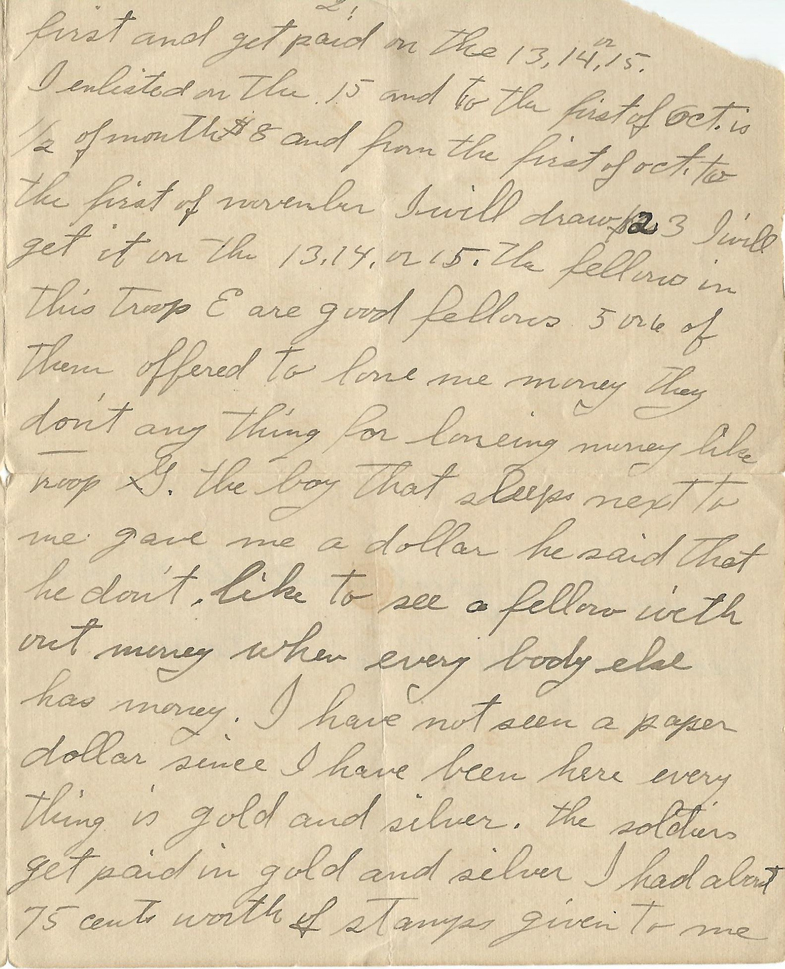 2!
first and get paid on the 13, 14, or 15.
I enlisted on the 15 and to the first of Oct. is
1/2 of month $8 and from the first of oct. to
the first of november I will draw $23 I will
get it on the 13, 14, or 15. the fellows in
this troop E are good fellows 5 or 6 of
them offered to lone me money they
don't any thing for loneing money like
Troop G. the boy that sleeps next to
me gave me a dollar he said that
he don't like to see a fellow with
out money when every body else
has money. I have not seen a paper
dollar since I have been here every
thing is gold and silver. the soldiers
get paid in gold and silver I had about
75 cents worth of stamps given to me